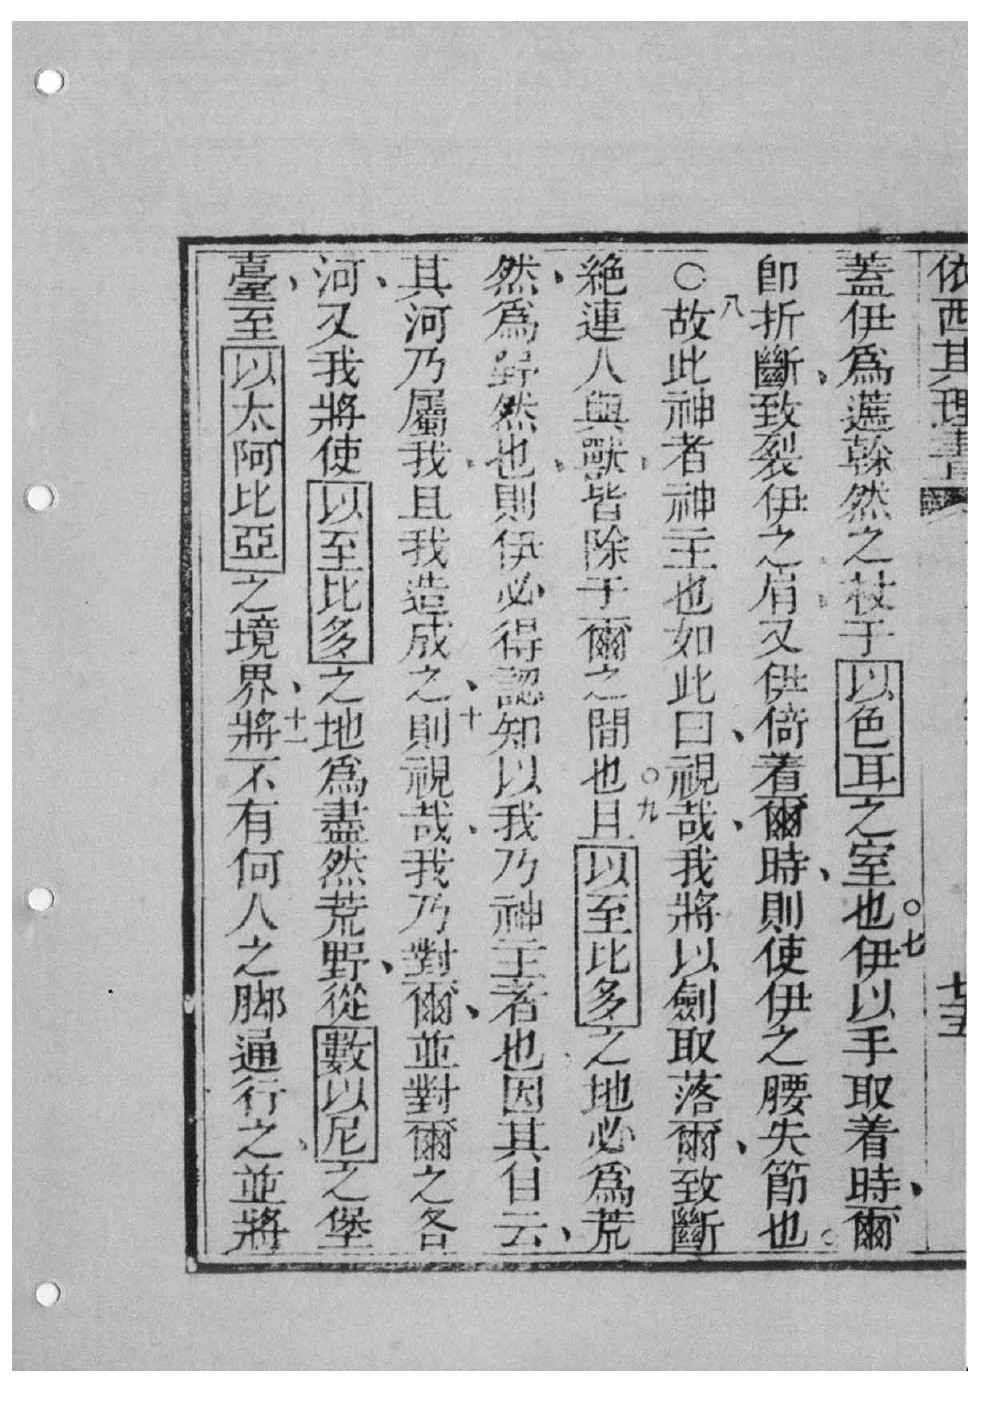 依西其理書
七五
蓋伊爲蘧蘇然之杖于以色耳之室也。七伊以手取着時、爾
卽折斷、致裂伊之肩、又伊倚着爾時、則使伊之腰失節也。
○八故此神者神主也如此曰、視哉、我將以劍取落爾、致斷
絶連人與獸、皆除于爾之間也。九且以至比多之地必爲荒
然、爲野然也、則伊必得認知以我乃神主者也、因其自云、
其河乃屬我、且我造成之、十則視哉、我乃對爾、並對爾之各
河、又我將使以至比多之地爲盡然荒野、從數以尼之堡
臺、至以太阿比亞之境界、十一將不有何人之脚通行之、並將